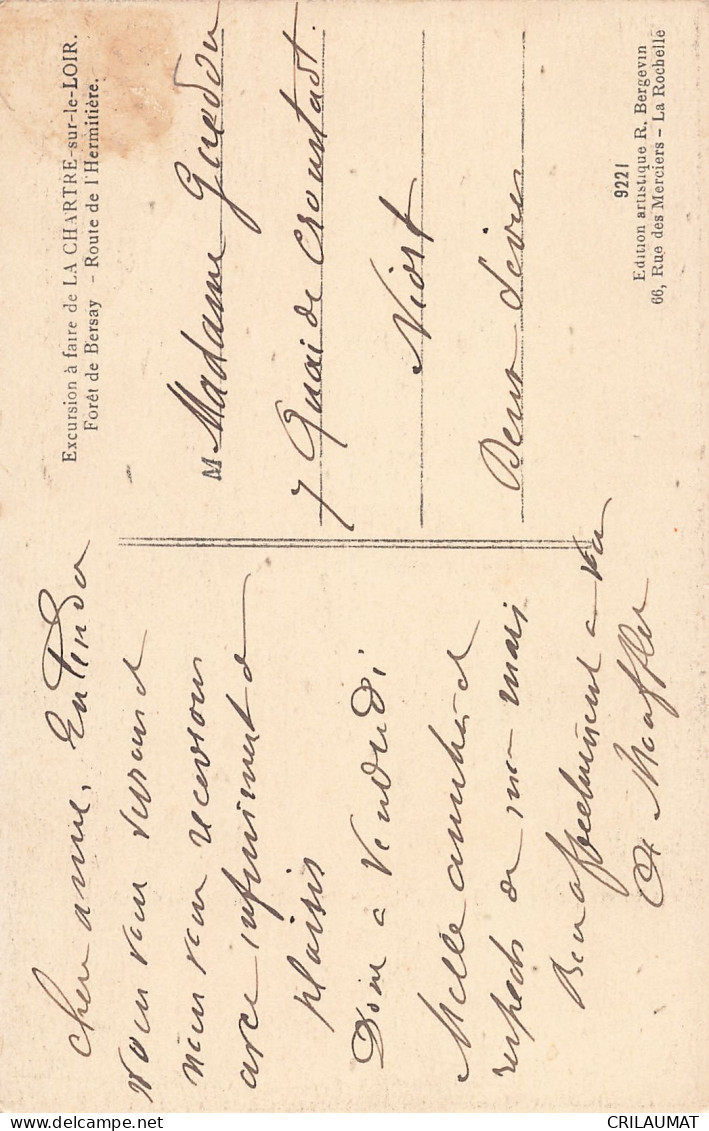 Excursion à faire de LA CHARTRE-sur-le-LOIR.
Forêt de Bersay - Route de l'Hermitière.
Chere amie, Entendu
vous
nous vous recevrons
avec infiniment de
plaisir
Donc a Vendredi
Mille amitiés et
respects de mon mari
Bien affectueusement a vous
M Madame
7 Quai de Cronstadt.
Niort
Deux Sèvres
9221
Edition artistique R. Bergevin
66, Rue des Merciers - La Rochelle
CRILAUMAT